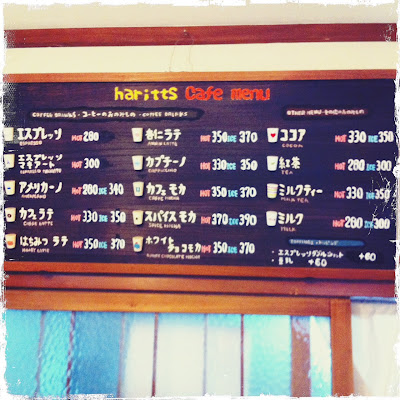 haritts Cafe menu
COFFEE DRINKS・コーヒーのおのみもの・COFFEE DRINKS
エスプレッソ HOT 280
ESPRESSO
HOT 300
アメリカーノ HOT 280 ICE 340
AMERICANO
カフェ ラテ HOT 330 ICE 350
CAFFE LATTE
はちみつ ラテ HOT 350 ICE 370
HONEY LATTE
あにラテ HOT 350 ICE 370
カプチーノ HOT 330 ICE 350
CAPPUCCINO
カフェ モカ HOT 350 ICE 370
CAFFE MOCHA
スパイス モカ HOT 370 ICE 390
SPICE MOCHA
ホワイト チョコモカ HOT 350 ICE 370
WHITE CHOCOLATE MOCHA
ココア HOT 330 ICE 350
COCOA
紅茶 HOT 280 ICE 300
TEA
ミルクティー HOT 330 ICE 350
MILK TEA
ミルク HOT 280 ICE 300
MILK
エスプレッソダブルショット +60
+60